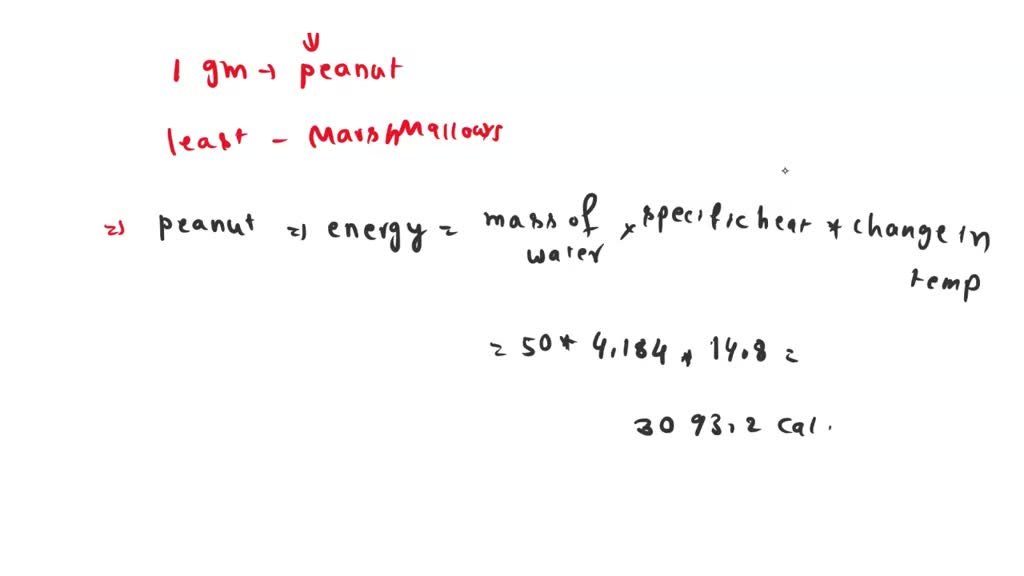 1 gm → peanut
least - Marshmallows
=) peanut =) energy = mass of water * specific heat * change in temp
= 50 * 4.184 * 14.8 =
3093.2 cal.